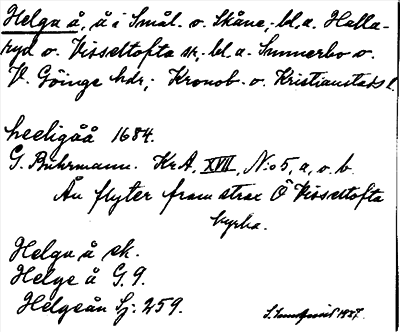 Helga å, å i Smål. o. Skåne, bl. a. Halla-
ryd o. Visseltofta sn, bl. a. Sunnerbo o.
V. Göinge hdr, Kronob. o. Kristianstads l.
heeligåå 1684.
G. Buhrmann. Kr. A. XVII, N:o 5, a, o. b.
Ån flyter fram strax Ö Visseltofta
kyrka.
Helga å ek.
Helge å G. 9.
Helgeån Sj: 259.
1927.